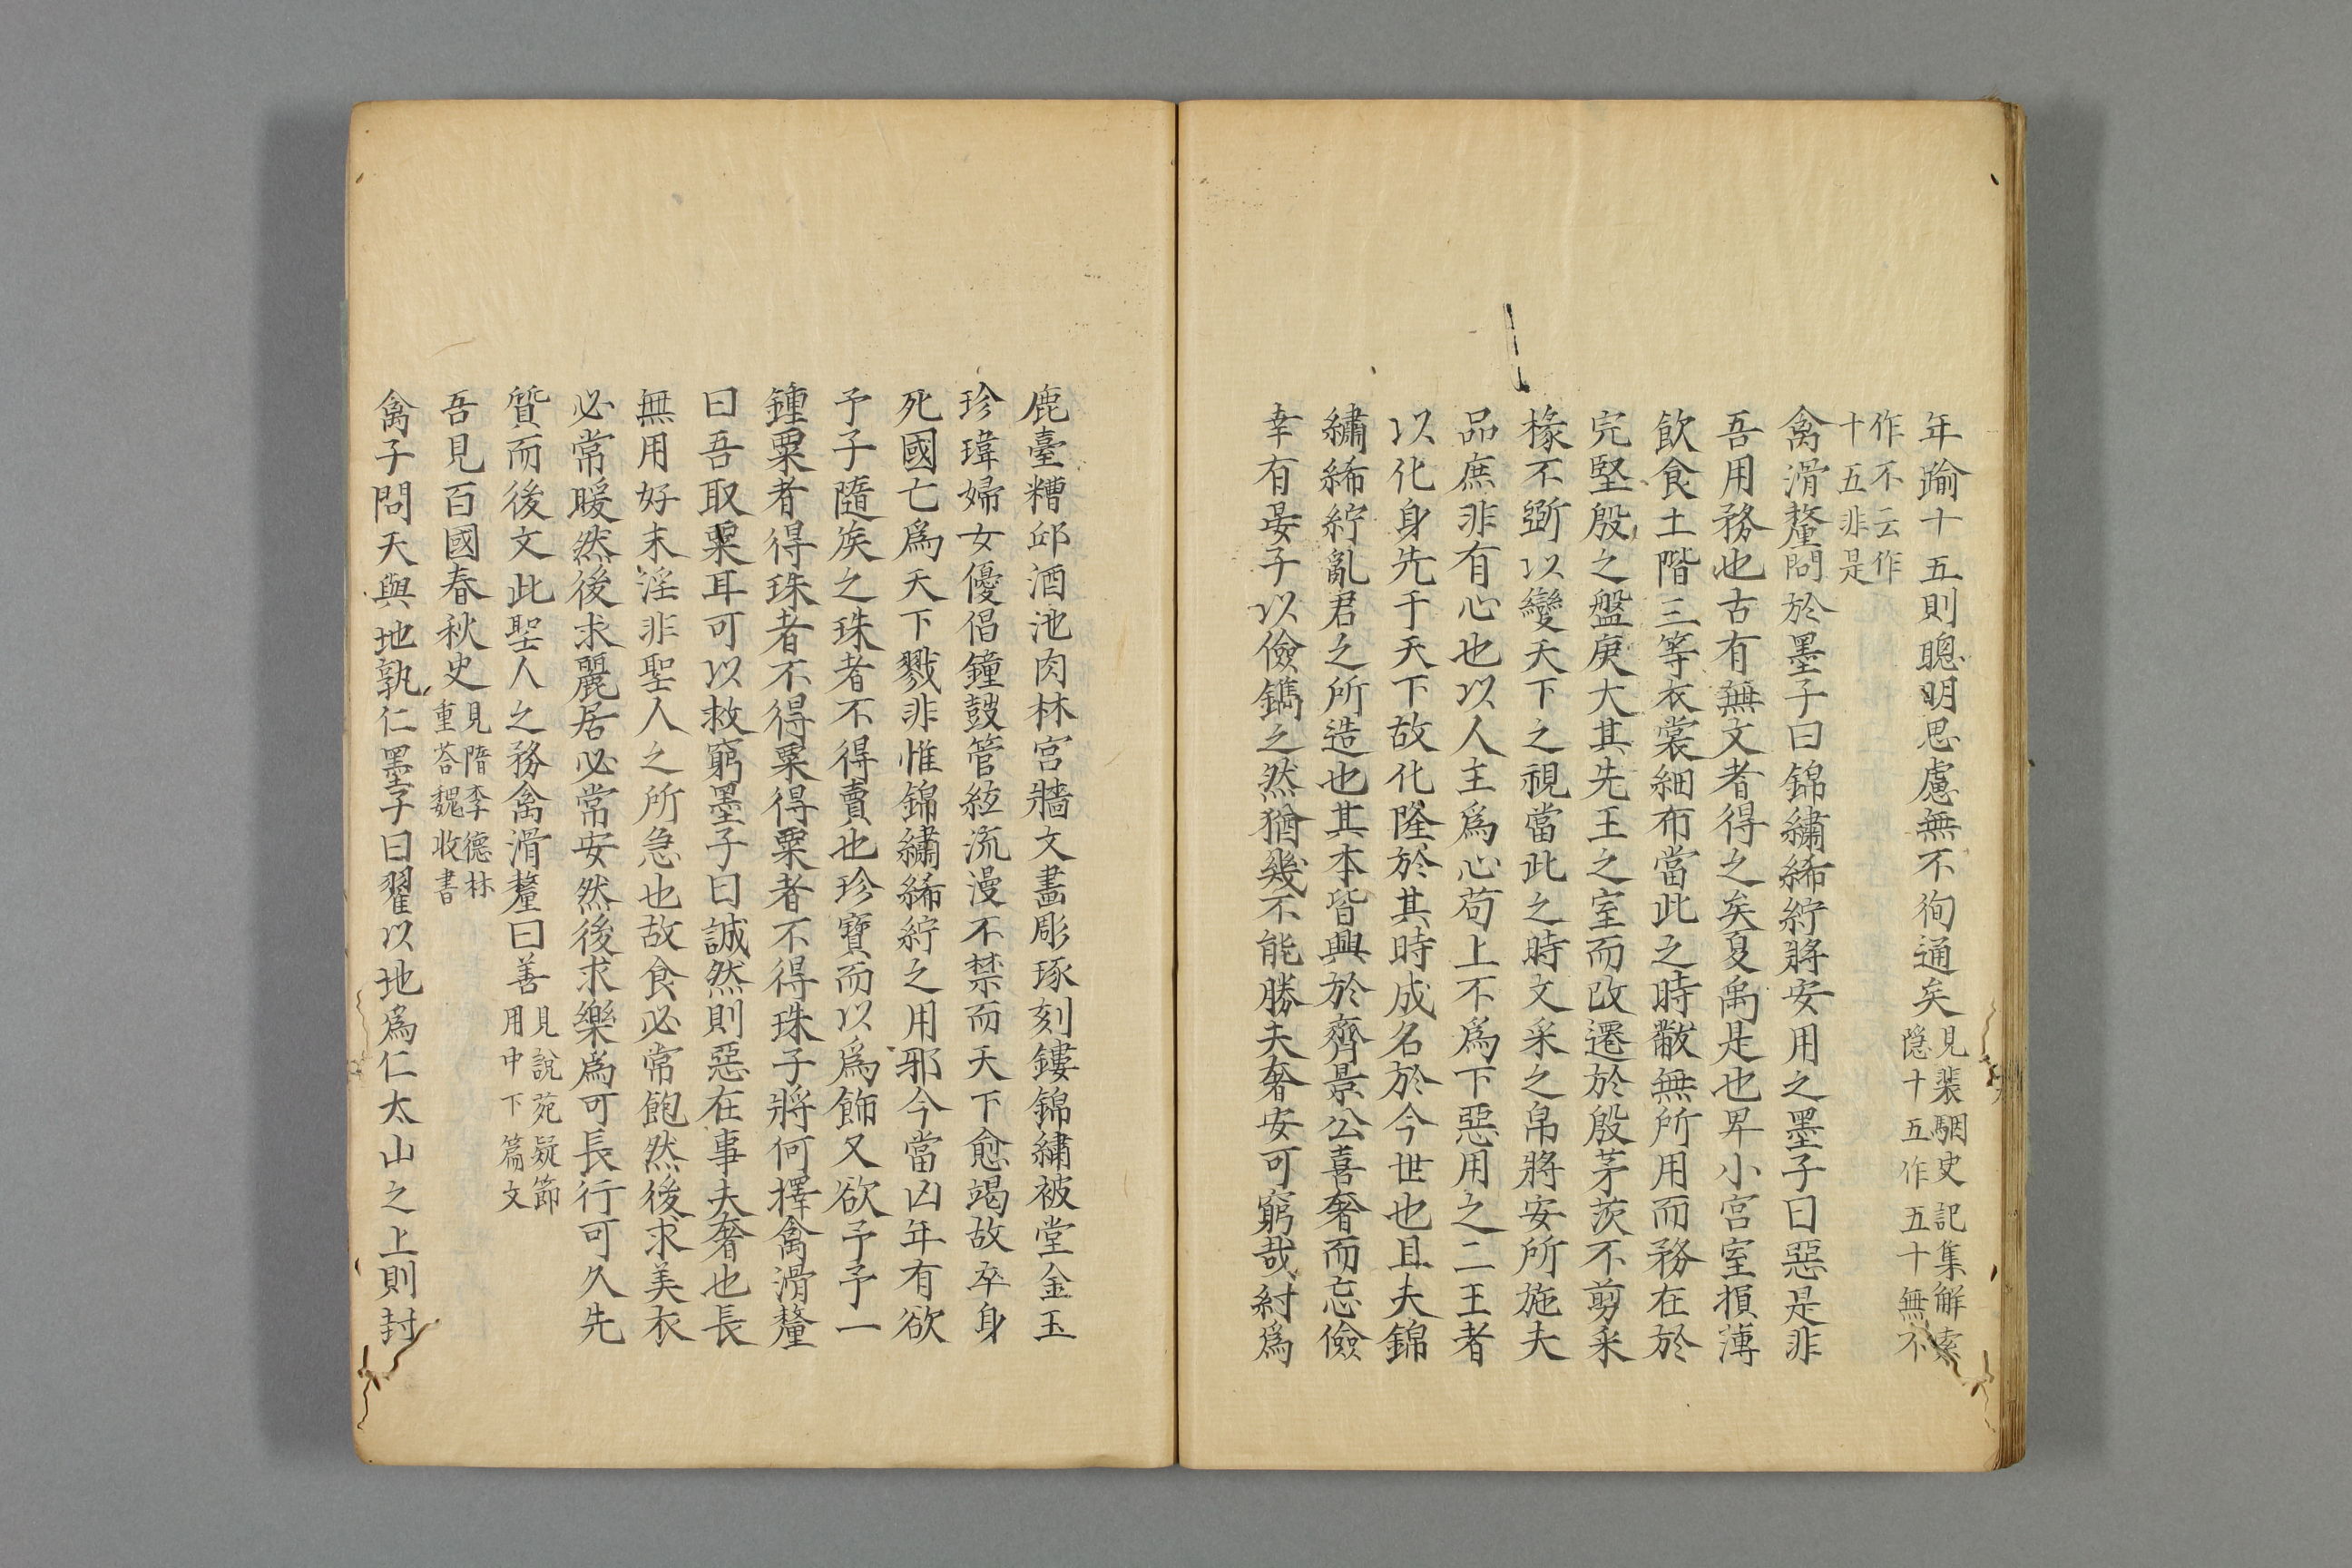 年踰十五則聰明思慮無不徇通矣見裴駰史記集解索
隠十五作五十無不
作不云作
十五非是
禽滑釐問於墨子曰錦繡絺紵將安用之墨子曰惡是非
吾用務也古有無文者得之矣夏禹是也卑小宮室損薄
飲食土階三等衣裳細布當此之時黻無所用而務在於
完堅殷之盤庚大其先王之室而改遷於殷茅茨不剪采
椽不斵以變天下之視當此之時文采之帛將安所施夫
品庶非有心也以人主爲心苟上不爲下惡用之二王者
以化身先于天下故化隆於其時成名於今世也且夫錦
繡絺紵亂君之所造也其本皆興於齊景公喜奢而忘儉
幸有晏子以儉鐫之然猶幾不能勝夫奢安可窮哉紂爲
鹿臺糟邱酒池肉林宮牆文畵彫琢刻鏤錦繡被堂金玉
珍瑋婦女優倡鐘鼓管絃流漫不禁而天下愈竭故卒身
死國亡爲天下戮非惟錦繡絺紵之用邪今當凶年有欲
予子隨矦之珠者不得賣也珍寶而以爲飾又欲予子一
鍾粟者得珠者不得粟得粟者不得珠子將何擇禽滑釐
曰吾取粟耳可以救窮墨子曰誠然則惡在事夫奢也長
無用好末淫非聖人之所急也故食必常飽然後求美衣
必常暖然後求麗居必常安然後求樂爲可長行可久先
質而後文此聖人之務禽滑釐曰善見說苑疑節
用中下篇文
吾見百國春秋史見隋李德林
重荅魏收書
禽子問天與地孰仁墨子曰翟以地爲仁太山之上則封